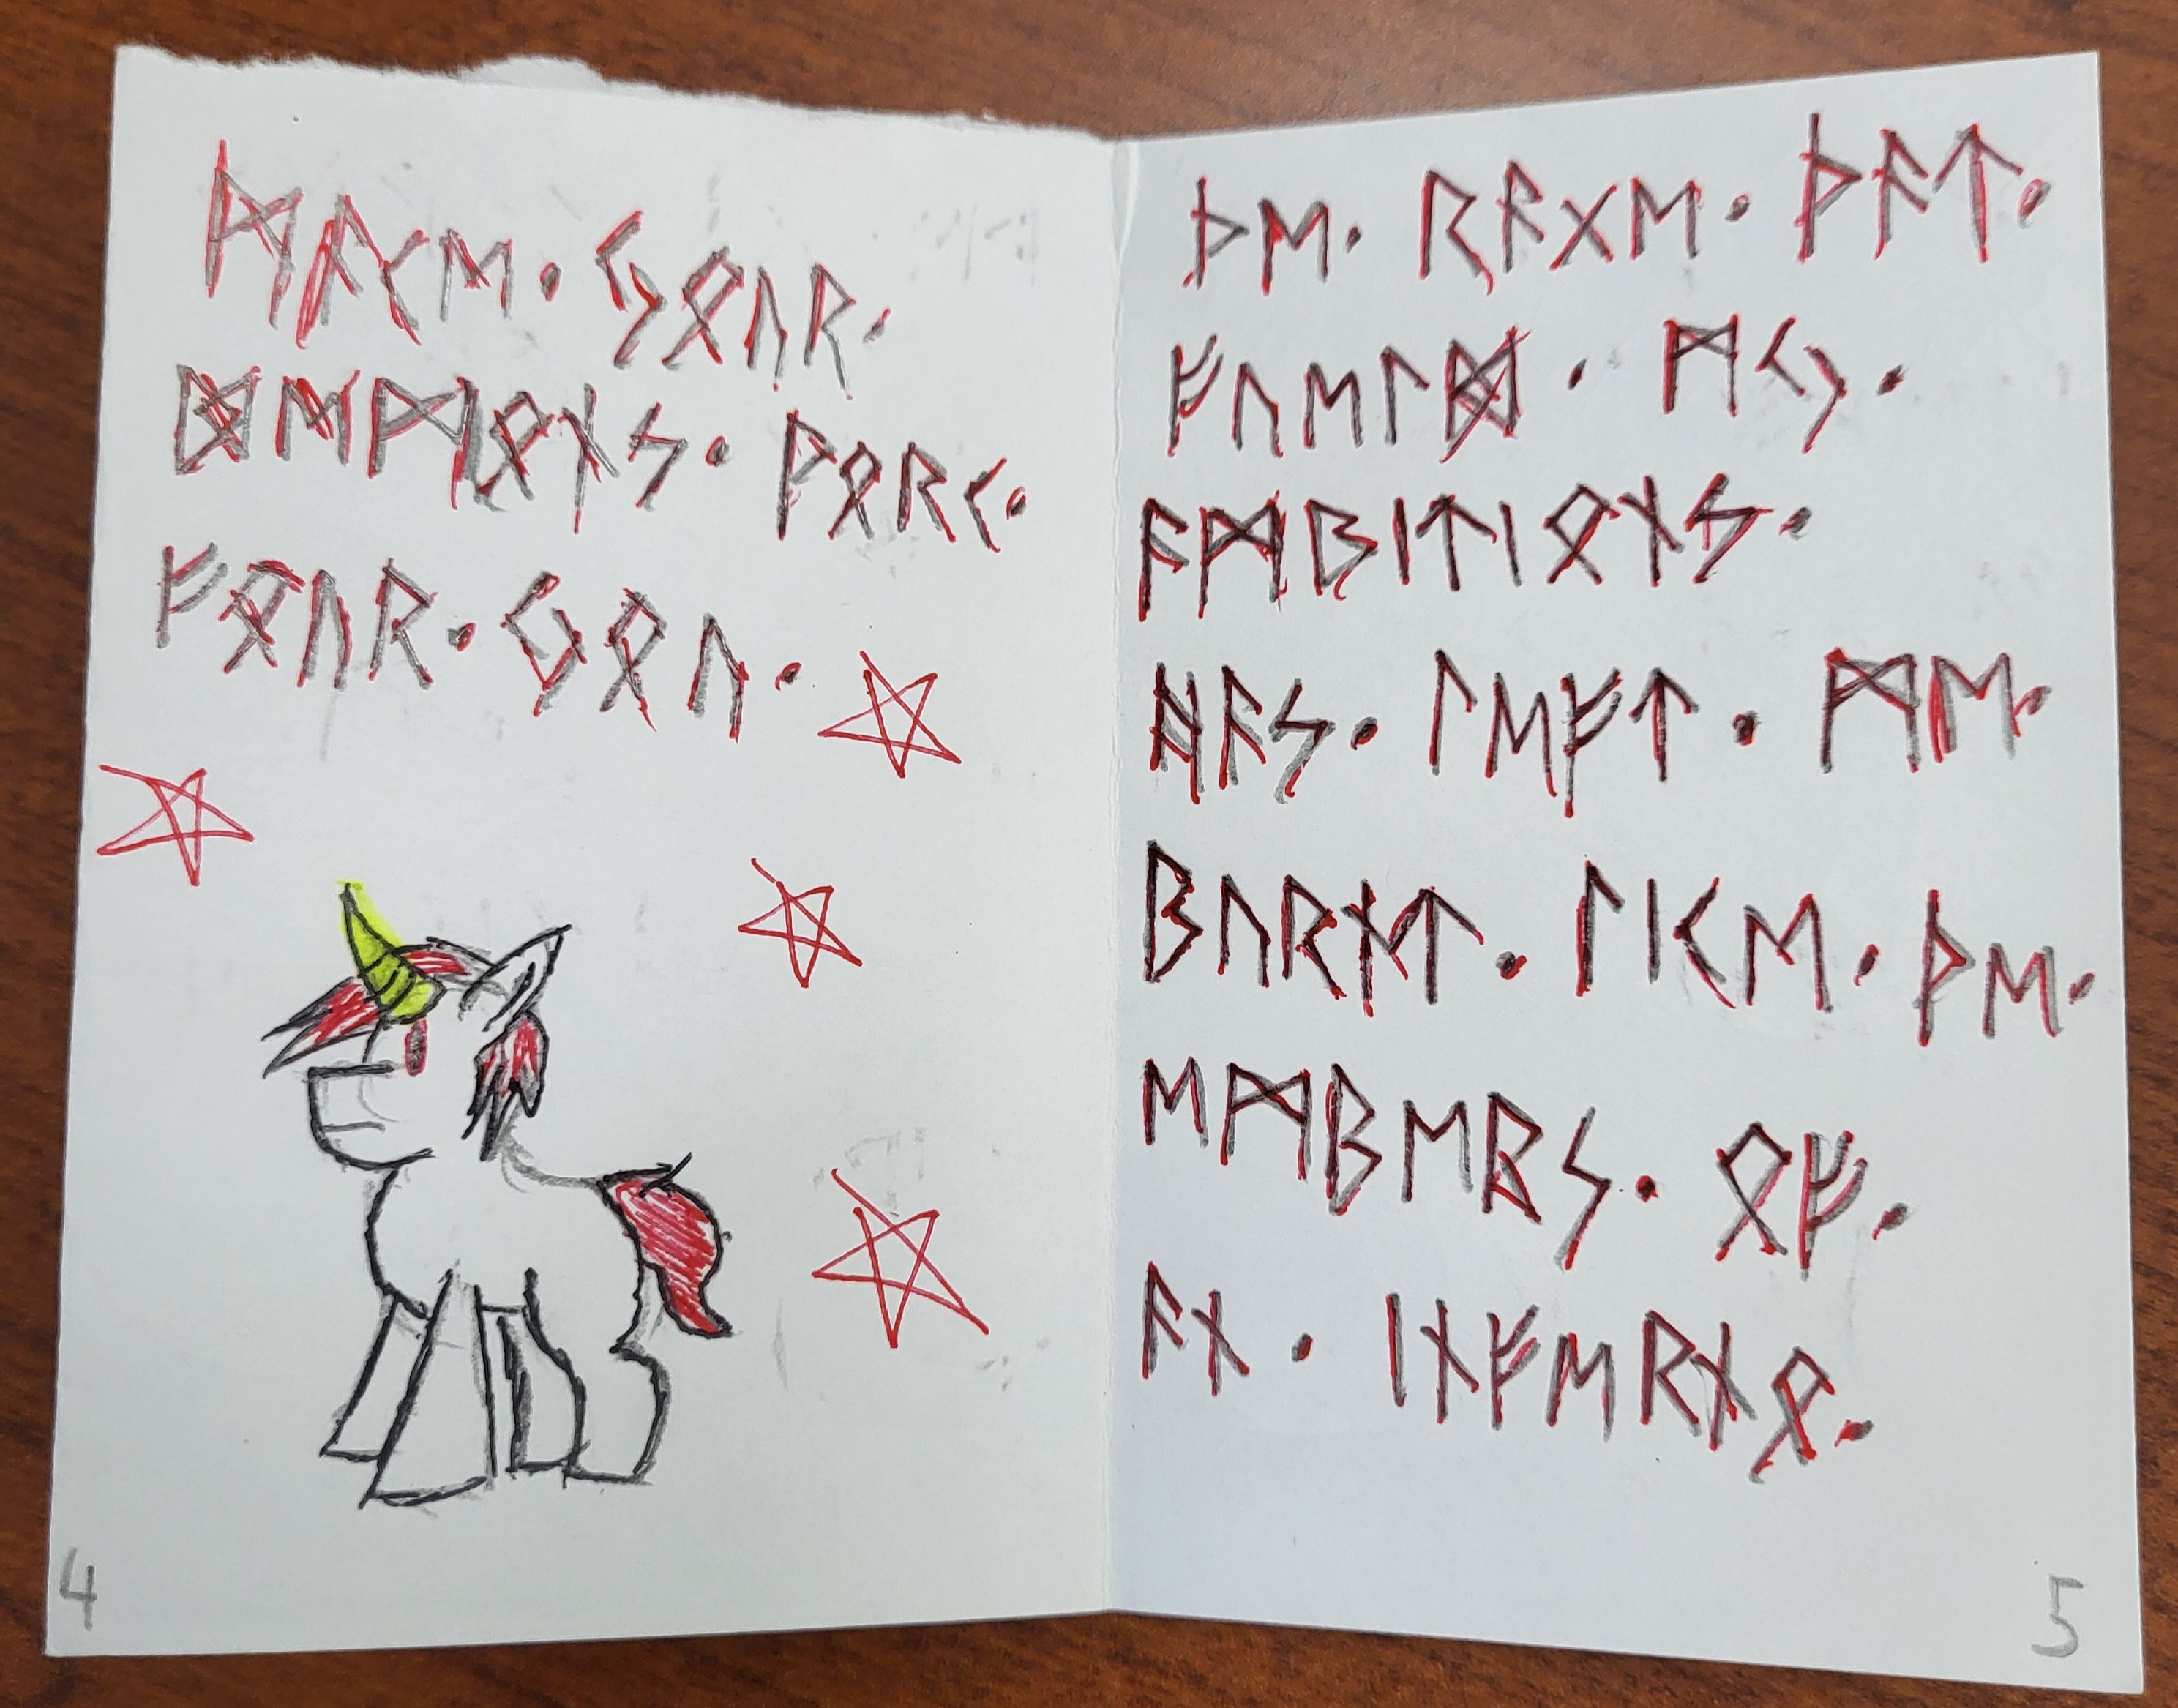 ᛗᚨᚲᛖ • ᛃᛟᚢᚱ •
ᛞᛖᛗᛟᚾᛋ • ᚹᛟᚱᚲ •
ᚠᛟᚢᚱ • ᛃᛟᚢ •
4
ᚦᛖ • ᚱᚨᚷᛖ • ᚦᚨᛏ •
ᚠᚢᛖᛚᛞ • ᛗᛃ •
ᚨᛗᛒᛁᛏᛁᛟᚾᛋ •
ᚺᚨᛋ • ᛚᛖᚠᛏ • ᛗᛖ •
ᛒᚢᚱᚾᛏ • ᛚᛁᚲᛖ • ᚦᛖ •
ᛖᛗᛒᛖᚱᛋ • ᛟᚠ •
ᚨᚾ • ᛁᚾᚠᛖᚱᚾᛟ •
5